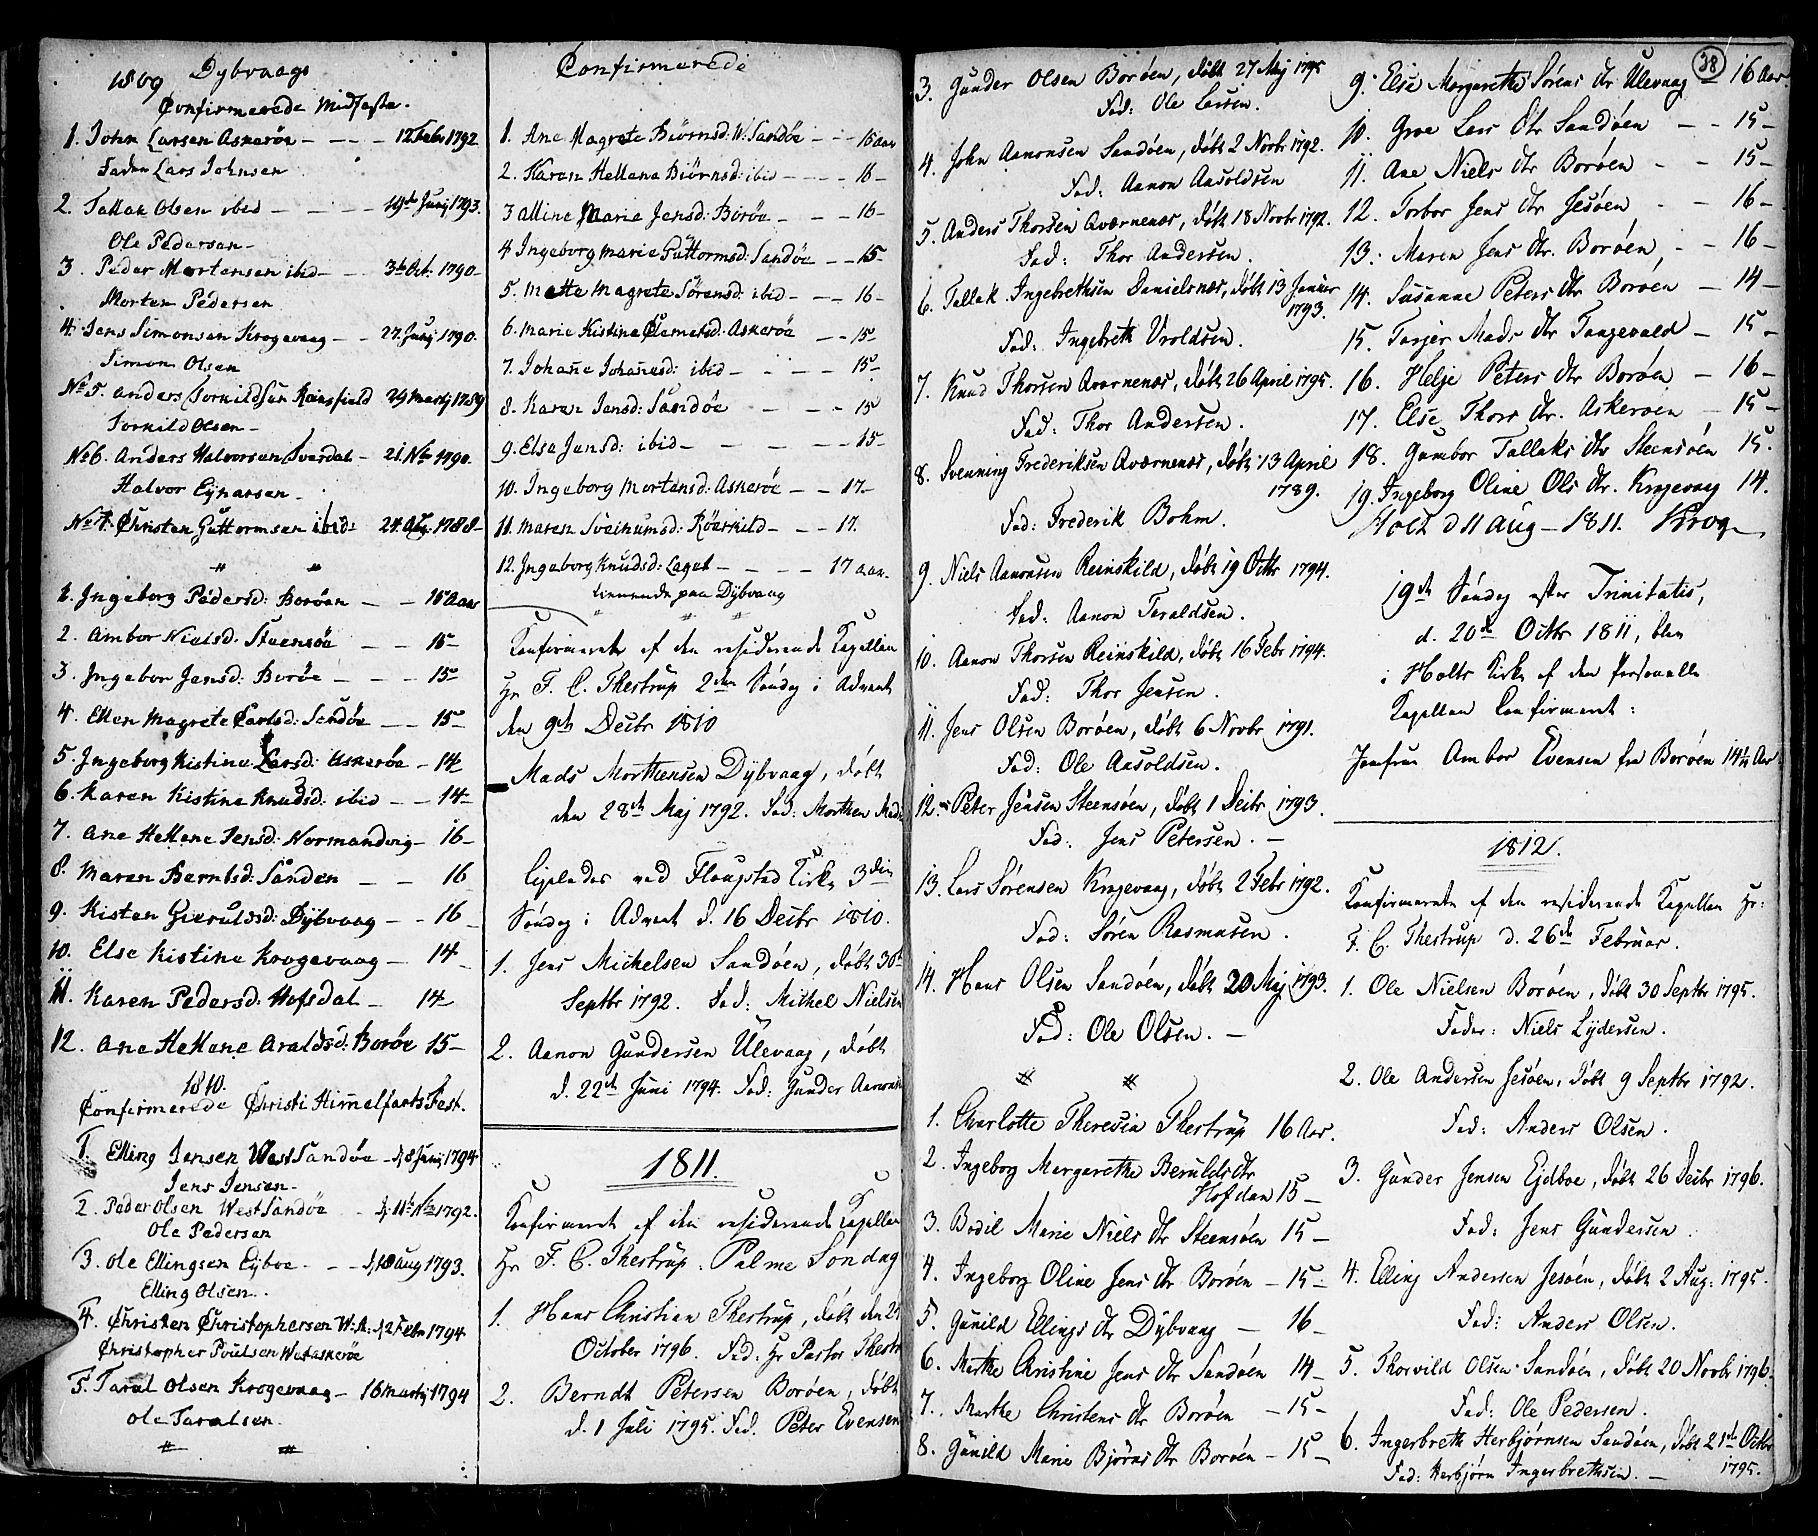 1809 Dybvaags
Confirmerede Midfaste.
1. John Larsen Askerøe - - - 12 Febr 1792
Faderen Lars Johnsen
2. Tallak Olsen ibid - - - 19de Junij 1793.
Ole Pedersen -
3. Peder Mortensen ibid - - 3de Oct. 1790 -
Morten Pedersen
4. Jens Simonsen Krogevaag - - 27 Junij 1790.
Simon Olsen
No 5. Anders Torkildsen 29 Martij 1789
Torkild Olsen -
No 6. Anders Halvorsen Sverdal - 21 Nov 1790.
Halvor Ejnarsen -
No 7. Christen Guttormsen ibid: 24 Aug. 1788 -
1. Ingeborg Pedersd: Borøen - - 16 Aar
2. Ambor Nielsd: Steensøe - - 15 -
3. Ingebor Jensd: Borøe - - - 15 -
4. Ellen Magrete Carlsd: Sandøe - - 15 -
5. Ingeborg Kistine Larsd: Askerøe - 14
6. Karen Kistine Knudsd: ibid - - 14 -
7. Ane Hellene Jensd: Normandvig - 16 -
8. Maren Berntsd: Sanden - - 16
9. Kisten Gieruldsd: Dybvaag - - 16 -
10. Else Kistine Krogevaag - 14 -
11. Karen Pedersd: Hofsdal - 14 -
12. Ane Hellene Araldsd: Borøe 15 -
1810.
Confirmerede Christi Himmelfarts Fest.
1. Elling Jensen West Sandøe - d. 8 Junij 1794
Jens Jensen -
2. Peder Olsen West Sandøe - d. 11te Nov 1792.
Ole Pedersen
3. Ole Ellingsen Eijboe - - d. 18 Aug 1793.
Elling Olsen.
4. Christen Christophersen W: A: d. 2 Febr 1794
Christopher Poulsen W: Askerøe
5. Taral Olsen Krogevaag - 16 Martij 1794
Ole Taralsen.
Confirmerede
1. Ane Magrete Biørnsd: W. Sandøe - - 15 aar
2. Karen Hellena Biörnsd: ibid - - - 16 -
3 Alline Marie Jensd: Borøe - - - 16 -
4 Ingeborg Marie Guttormsd: Sandøe - - 15 -
5. Mette Magrete Sörensd: ibid - - - 16 -
6. Marie Kistine Clemetsd: Askerøe - - 15 -
7. Johanne Johannesd: ibid - - - 15 -
8. Karen Jensd: Sandøe - - - 15
9. Else Jensd: ibid - - - - 15 -
10. Ingeborg Mortensd: Askerøe - - 17 -
11. Maren Sveinumsd: - - - 17.
12. Ingeborg Knudsd: Laget - - - 17 aar.
tienende paa Dybvaag
Konfirmerede af den residerende Kapellan
Hr F. C. Thestrup 2den Søndag i Advent
den 9de Decbr 1810
Mads Morthensen Dybvaag, døbt
den 28de Maj 1792. Fad: Morthen Mads
Ligeledes ved Flaugstad Kirke 3die
Søndag i Advent d. 16 Decbr 1810.
1. Jens Michelsen Sandøen, døbt 30te
Septbr 1792. Fad: Michel Nielsen
2. Aanon Gundersen Ulevaag, døbt
d. 22de Juni 1794. Fad: Gunder Aanons
1811.
Konfirmeret af den residerende Kapellan
Hr F. C. Thestrup. Palme Søndag
1. Hans Christian Thestrup, døbt den 25
October 1796. Fad: Hr Pastor Thestr
2. Berndt Petersen Borøen, døbt
d. 1 Juli 1795. Fad. Peter Evensen
38
3. Gunder Olsen Borøen, døbt 27 Maj 1795
Fad: Ole Larsen.
4. John Aanonsen Sandøen, døbt 2 Novbr 1792.
Fad: Aanon Aasoldsen
5. Anders Thorsen Qværnenæs, døbt 18 Novbr 1792.
Fad: Thor Andersen.
6. Tallak Ingebrethsen Danielsnæs, døbt 13 Januar
1793.
Fad: Ingebreth Vroldsen.
7. Knud Thorsen Qvarnenæs, døbt 26 April 1795.
Fad: Thor Andersen.
8. Svenning Frederiksen Qværnenæs, døbt 13 April
1789.
Fad: Frederik Bohm.
9. Niels Aanonsen Reinskild, døbt 19 Octbr 1794.
Fad: Aanon Taraldsen.
10. Aanon Thorsen Reinskild, døbt 16 Febr 1794.
Fad: Thor Jensen.
11. Jens Olsen Borøen, døbt 6 Novbr 1791.
Fad: Ole Aasoldsen.
12. Peter Jensen Steensøen, døbt 1 Decbr 1793.
Fad: Jens Petersen. -
13. Lars Sørensen Krogevaag, døbt 2 Febr 1792.
Fad: Søren Rasmusen.
14. Hans Olsen Sandøen, døbt 20 Maj 1793.
Fad: Ole Olsen. -
1. Charlotte Theresia Thestrup 16 Aar.
2. Ingeborg Margarethe Berulds dtr
Hofdan 15 -
3. Bodil Marie Niels dtr Steensøen 15 -
4. Ingeborg Oline Jens dtr Borøen - 15 -
5. Gunild Ellings dtr Dybvaag - 16 -
6. Marthe Christine Jens dtr Sandøen 14 -
7. Marthe Christens dtr Borøen - 15 -
8. Gunild Marie Bjørns dtr Borøen - 15 -
9. Else Margarethe Sørens dtr Ulevaag 16 Aar.
10. Groe Lars dtr Sandøen - - 15 -
11. Ane Niels dtr Borøen - - 15 -
12. Torbor Jens dtr Jesøen - - 16 -
13. Maren Jens dtr Borøen, - - 16 -
14. Susanne Peters dtr Borøen - 14 -
15. Torjer Mads dtr Tangevald - 15 -
16. Helje Peters dtr Borøen - 16 -
17. Else Thors dtr. Askerøen - 15 -
18. Gumbor Tallaks dtr Steensøen 15.
19. Ingeborg Oline Ols dtr. Krogevaag 14.
Holt d 11 Aug - 1811. Krog
19de Søndag efter Trinitatis,
d. 20de Octbr 1811, blev
i Holts Kirke af den Personelle
Kapellan Confirmeret:
Jomfrue Ambor Evensen fra Borøen 14½ Aar.
1812.
Konfirmerede af den residerende Kapellan Hr:
F. C. Thestrup d. 26de Februar.
1. Ole Nielsen Borøen, døbt 30 Septbr 1795.
Fader: Niels Lydersen.
2. Ole Andersen Jesøen, døbt 9 Septbr 1792.
Fad: Anders Olsen.
3. Gunder Jensen Ejdboe, døbt 26 Decbr 1796.
Fad: Jens Gundersen.
4. Elling Andersen Jesøen, døbt 2 Aug: 1795.
Fad: Anders Olsen.
5. Thorvild Olsen Sandøen, døbt 20 Novbr 1796.
Fad: Ole Pedersen.
6. Ingerbreth Herbjørnsen Sandøen, døbt 21de Octbr
1795.
Fad: Herbjørn Ingerbrethsen. -